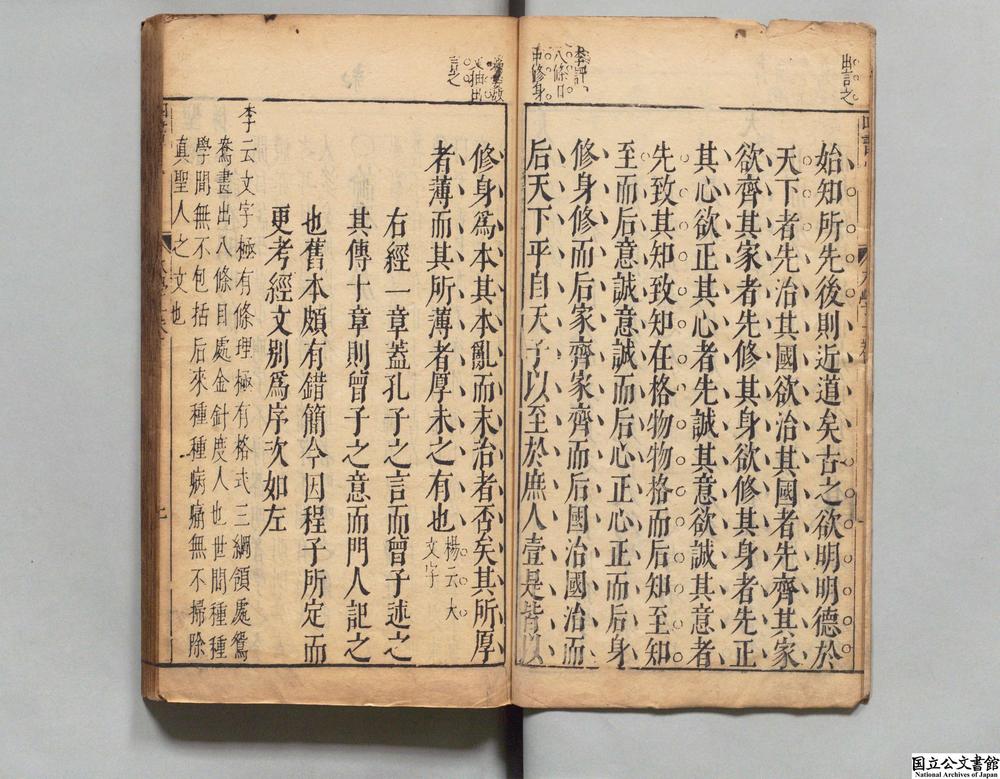 出言之
始知所先後則近道矣古之欲明明德於
天下者先治其國欲治其國者先齊其家
欲齊其家者先修其身欲修其身者先正
其心欲正其心者先誠其意欲誠其意者
先致其知致知在格物物格而后知至知
至而后意誠意誠而后心正心正而后身
修身修而后家齊家齊而后國治國治而
后天下平自天子以至於庶人壹是皆以
李評
八條目
修身
修身爲本其本亂而末治者否矣其所厚
者薄而其所薄者厚未之有也
楊云大
文字
抽出
言之
右經一章蓋孔子之言而曾子述之
其傳十章則曾子之意而門人記之
也舊本頗有錯簡今因程子所定而
更考經文別爲序次如左
李云文字極有條理極有格式三綱領處鴛
鴦畫出八條目處金針度人也世間種種
學問無不包括后來種種病痛無不掃除
真聖人之文也
国立公文書館
National Archives of Japan